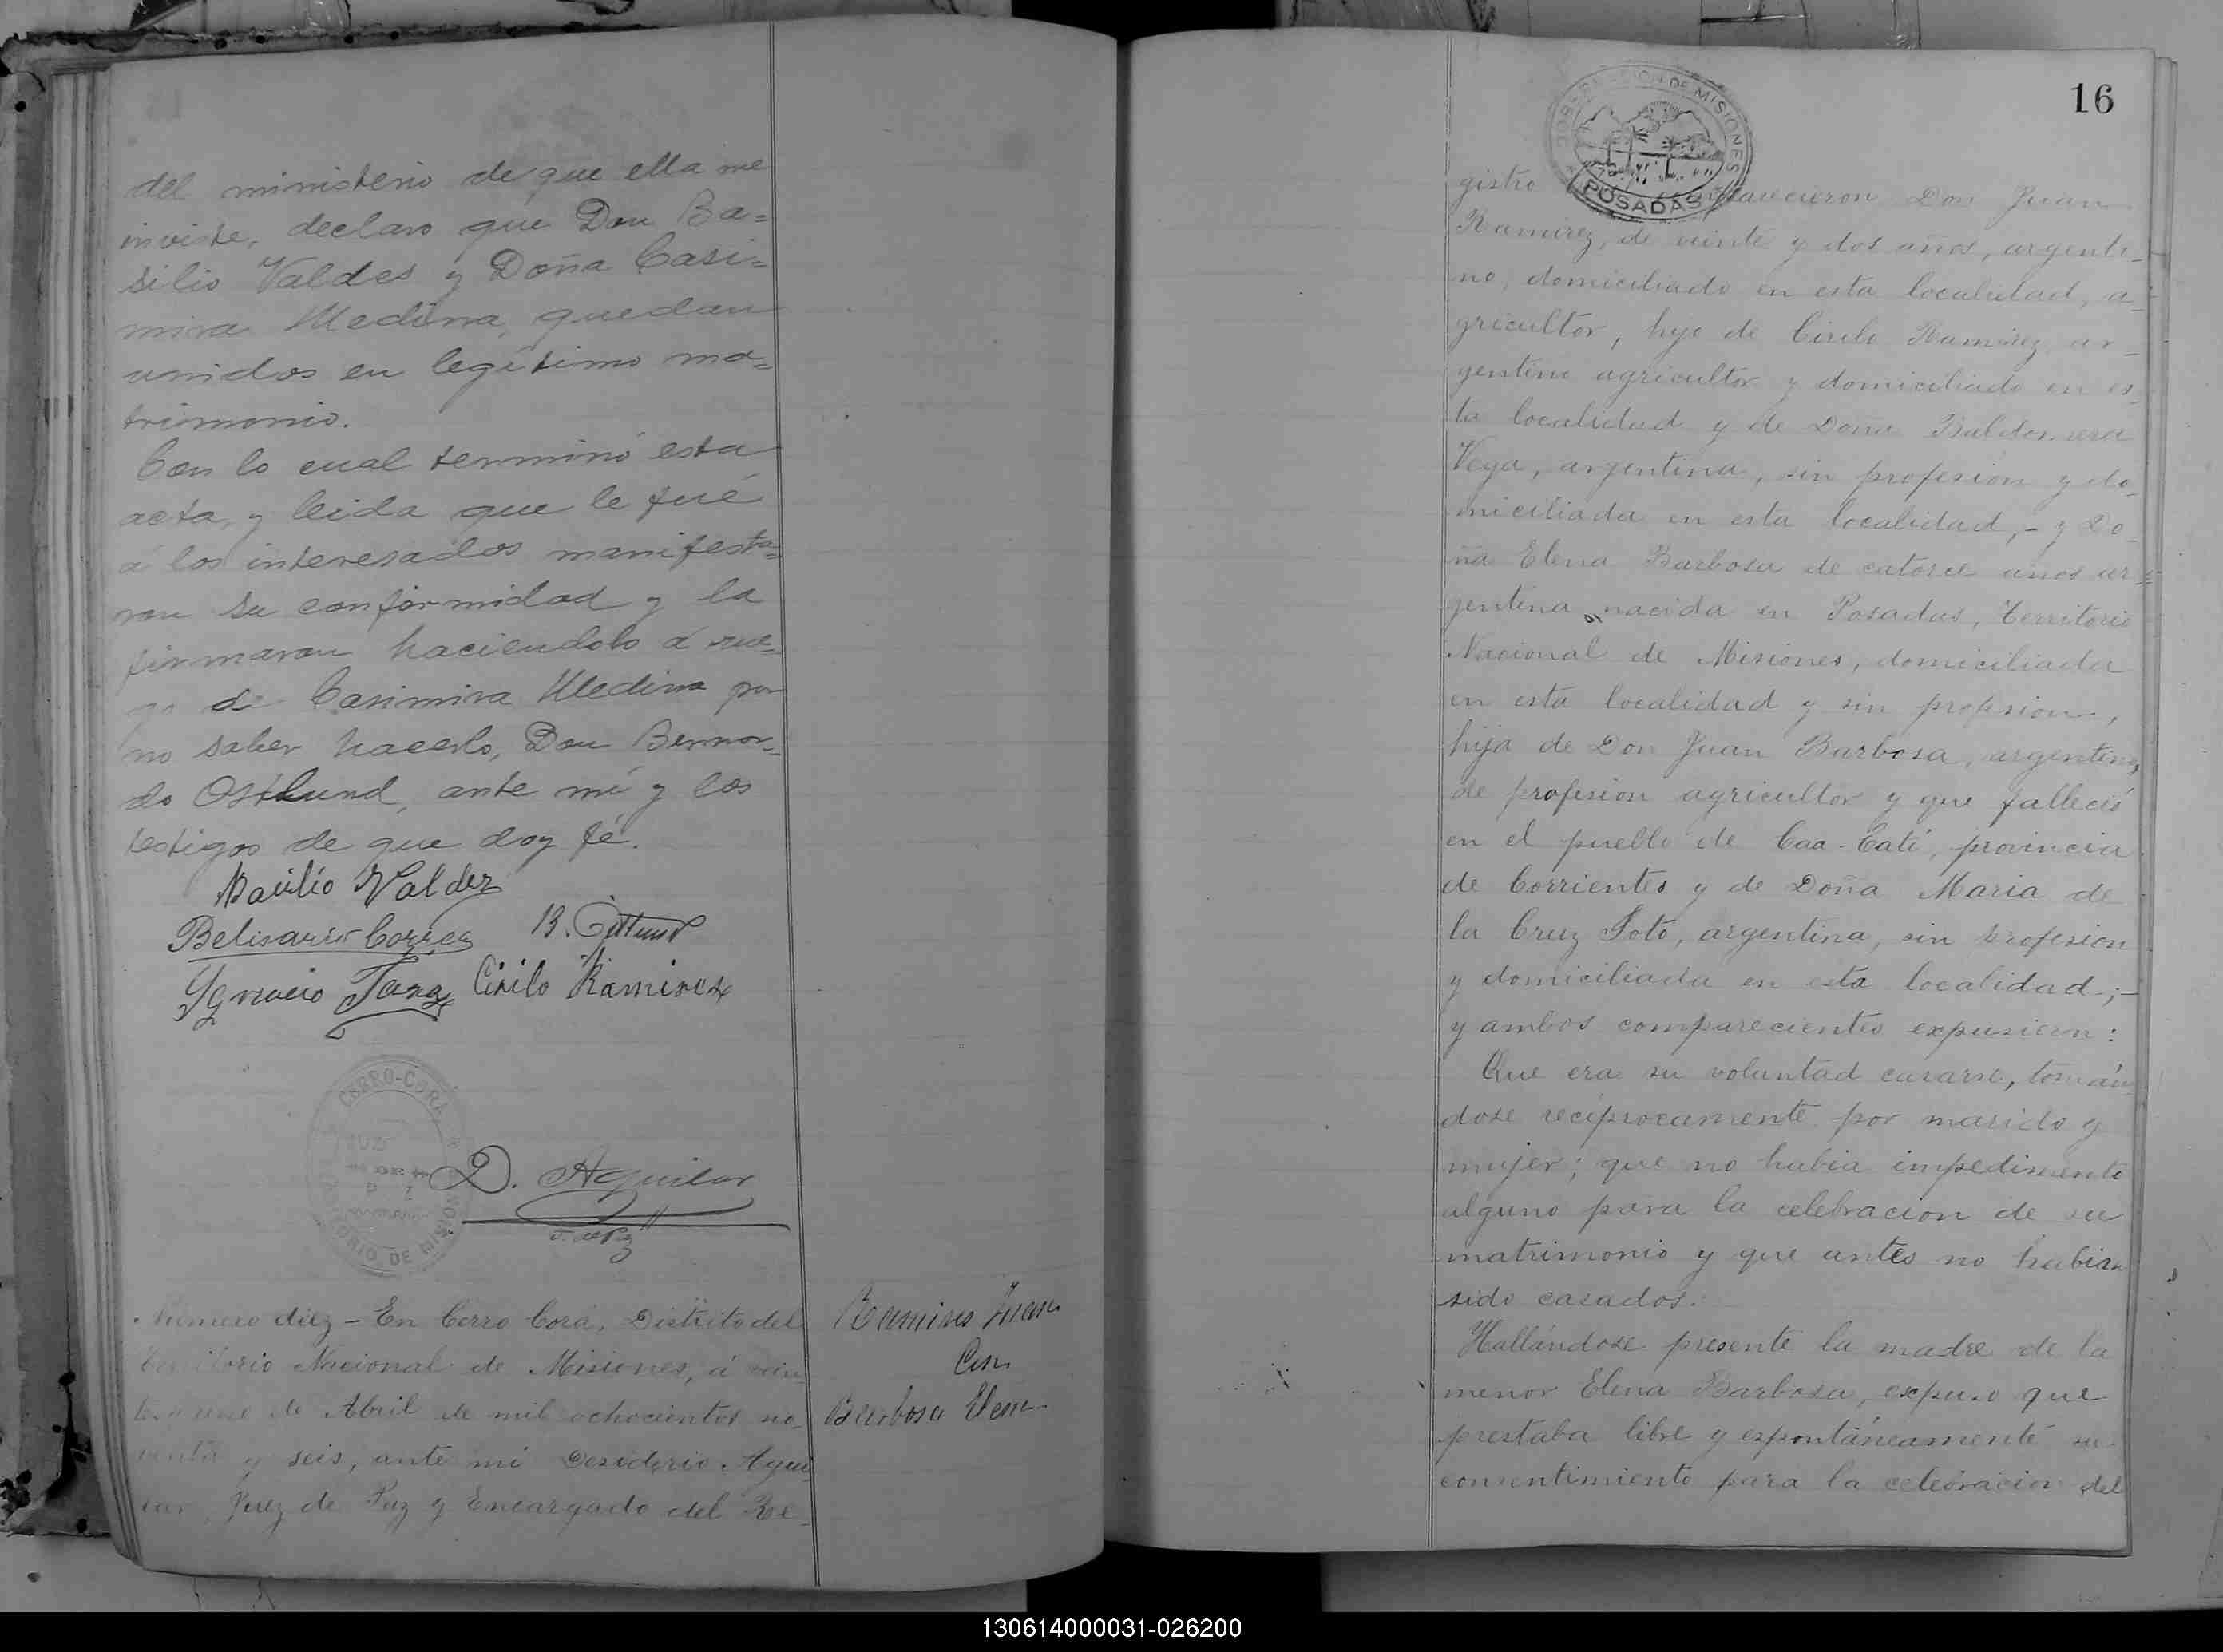 del ministerio de que ella me
inviste, declaro que Don Ba=
silio Valdes y Doña Casi=
mira Medina, quedan
unidos en legítimo ma=
trimonio.
Con lo cual terminó esta
acta, y leida que le fué
á los interesados manifesta=
ron su conformidad y la
firmaron haciendolo á rue=
go de Casimira Medina por
no saber hacerlo, Don Bernar=
do Ostlund, ante mí y los
testigos de que doy fé.
Basilio Valdez
Belisario Correa B. Ostlund
Ygnacio Cirilo Ramirez
CERRO-CORÁ
TERRITORIO DE MISIONES
D. Aguilar
J. de Paz
Número diez - En Cerro Corá, Distrito del
Territorio Nacional de Misiones, á vein
de Abril de mil ochocientos no_
venta y seis, ante mi Desiderio Agui
lar, Juez de Paz y Encargado del Re_
Ramires Juan
Con
Barbosa Elena
16
GOBERNACION DE MISIONES
POSADAS
gistro comparecieron Don Juan
Ramirez, de veinte y dos años, argenti_
no, domiciliado en esta localidad, a_
gricultor, hijo de Cirilo Ramirez, ar_
gentino agricultor y domiciliado en es_
ta localidad y de Doña Baldomera
Vega, argentina, sin profesion y do_
miciliada en esta localidad, - y Do_
ña Elena Barbosa de catorce años ar=
gentina, nacida en Posadas, Territorio
Nacional de Misiones, domiciliada
en esta localidad y sin profesion,
hija de Don Juan Barbosa, argentino,
de profesion agricultor y que falleció
en el pueblo de Caa-Catí, provincia
de Corrientes y de Doña Maria de
la Cruz Soto, argentina, sin profesion
y domiciliada en esta localidad; -
y ambos comparecientes expusieron:
Que era su voluntad casarse, tomán
dose recíprocamente por marido y
mujer; que no habia impedimento
alguno para la celebracion de su
matrimonio y que antes no habian
sido casados.
Hallándose presente la madre de la
menor Elena Barbosa, expuso que
prestaba libre y espontáneamente su
consentimiento para la celebracion del
130614000031-026200